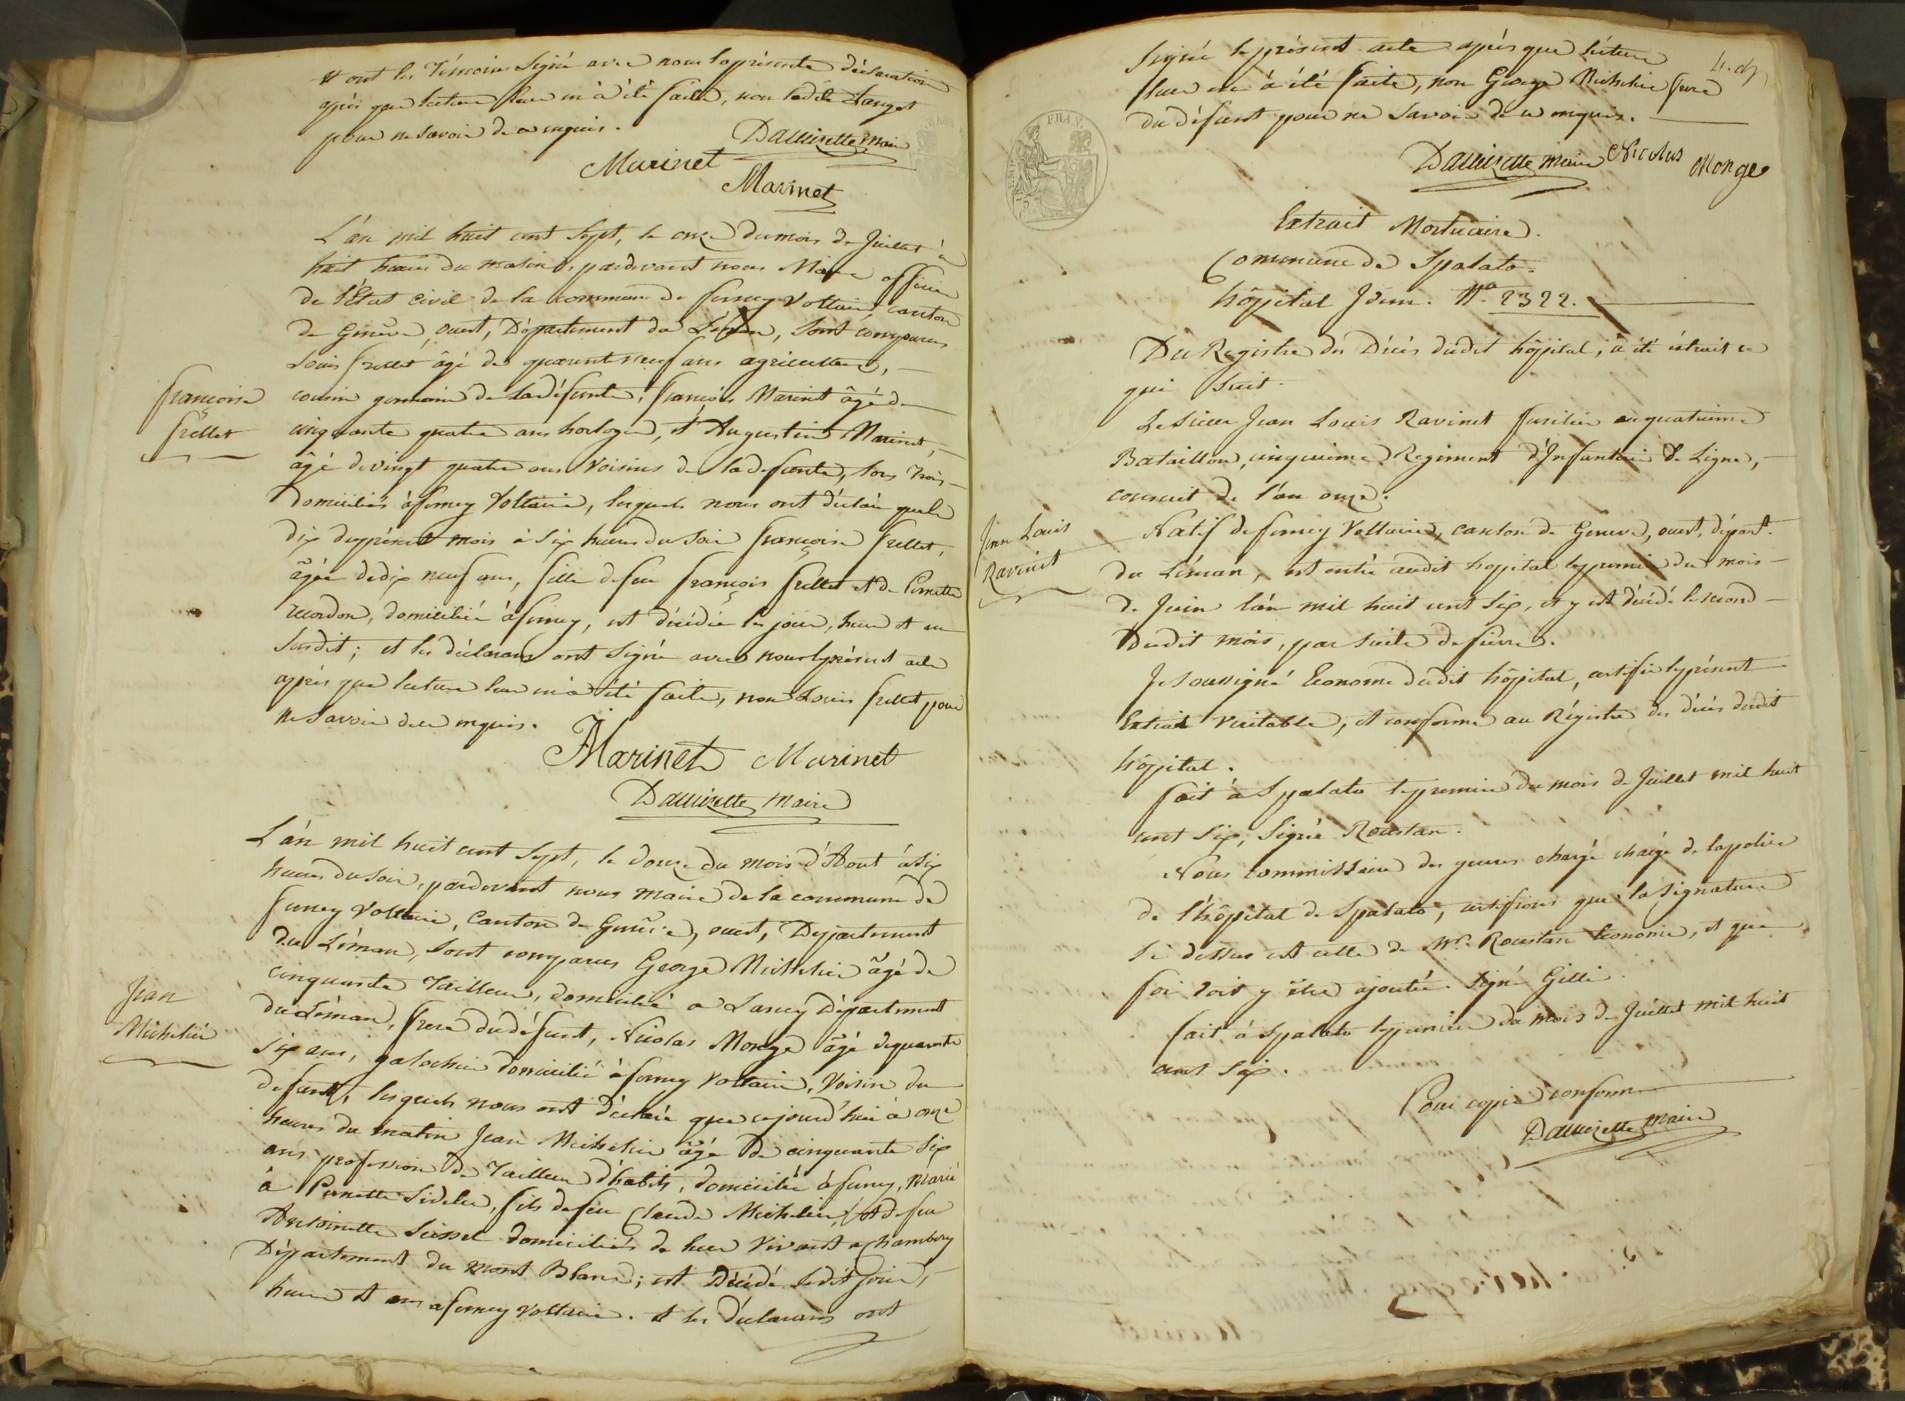 et ont les témoins signé avec nous la présente déclaration
après que lecture leur en à été faite, non ladite
pour ne savoir de ce enquis.
Dauvizette Maire
Marinet
Marinet
L'an mil huit cent sept, le onze du mois de Juillet à
huit heures du matin, pardevant nous Maire officier
de l'État civil de la commune de ferney Voltaire canton
de Genève, ouest, Département du Léman, sont comparus
Louis frellet âgé de quarante neuf ans agriculteur,
françoise
frellet
cousin germain de la défunte, françois Marinet âgé de
cinquante quatre ans horloger, et Augustin Marinet,
âgé de vingt quatre ans voisins de la defunte, tous trois
Domiciliés à ferney Voltaire, lesquels nous ont déclaré que le
dix du présent mois à six heures du soir françoise frellet,
âgée de dix neuf ans, fille de feu françois frellet et de Pernette
domiciliée à ferney, est décédée les jour, heure et an
susdit; et les déclarans ont signé avec nous le présent acte
après que lecture leur en à été faite, non Louis frellet pour
ne savoir de ce enquis.
Marinet Marinet
Dauvizette Maire
L'an mil huit cent sept, le douze du mois d'Aout à six
heures du soir, pardevant nous maire de la commune de
ferney Voltaire, Canton de Genève, ouest, Département
du Léman, sont comparus George Michelin âgé de
cinquante Tailleur, domicilié a Lancy Département
Jean
Michelin
du Léman, frere du défunt, Nicolas Monge âgé de quarante
six ans, galochier domicilié à ferney Voltaire, Voisin du
defunt, lesquels nous ont déclaré que cejourd'hui à onze
heures du matin Jean Michelin âgé de cinquante six
ans profession de Tailleur d'habits, domicilié à ferney, Marié
à Pernette fils de feu Claude Michelin, et de feu
Antoinette domiciliés de leur vivant a Chambery
Département du Mont Blanc; est Décédé ledit jour,
heure et an a ferney Voltaire. et les déclarans ont
signé le présent acte après que lecture
leur en à été faite, non George Michelin frere
du défunt pour ne savoir de ce enquis.
Dauvizette Maire Nicolas Monge
Extrait Mortuaire.
Commune de Spalato.
hôpital Idem. No. 2322.
Du Registre des Décès dudit hôpital, à été extrait ce
qui suit.
Le Sieur Jean Louis Ravinet fusilier au quatrieme
Bataillon, cinquieme Regiment d'Infanterie de Ligne,
conscrit de l'an onze.
Jean Louis
Ravinet
Natif de ferney Voltaire, canton de Geneve, ouest, départ.
du Léman, est entré audit hopital le premier du mois
de Juin l'an mil huit cent six, et y est décédé le second
dudit mois, par suite de fievre.
Je soussigné Econome dudit hôpital, certifie le présent
Extrait véritable, et conforme au Régistre des décès dudit
hôpital.
fait à Spalato le premier du mois de Juillet mil huit
cent six, signé Roustan.
Nous commissaire des guerres chargé chargé de la police
de l'hôpital de Spalato, certifions que la signature
ci dessus est celle de Mr. Roustan Econome, et que
foi doit y être ajoutée. signé Gilli
fait à Spalato le premier du mois de Juillet mil huit
cent six.
Pour copie conforme
Dauvizette Maire